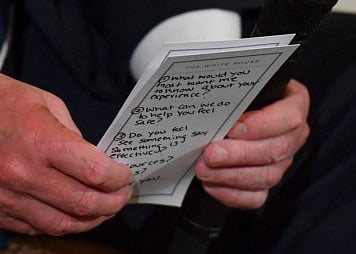 THE WHITE HOUSE
① What would you
most want me
to know about your
experience?
② What can we do
to help you feel
safe?
③ Do you feel
see something say
something is
effective?
you.